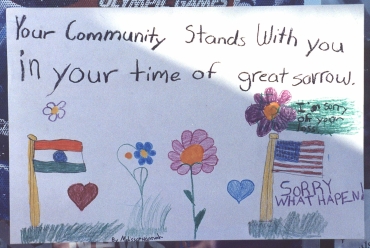 OLYMPIC GAMES
Your Community Stands With you
in your time of great sorrow.
I'm sorry
of your
loss
SORRY
WHAT HAPEN
by